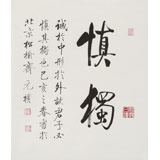 慎獨
誠於中形於外故君子必
慎其獨也己亥之春書於
北京松榆齋